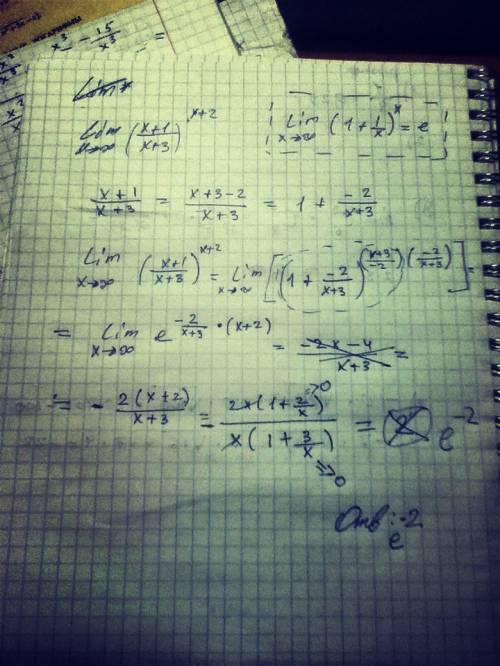 x³ - 15/x³ =
Lim
Lim x→∞ ((x+1)/(x+3))^(x+2)
Lim x→∞ (1 + 1/x)^x = e
(x+1)/(x+3) = (x+3-2)/(x+3) = 1 + (-2)/(x+3)
Lim x→∞ ((x+1)/(x+3))^(x+2) = Lim x→∞ [((1 + (-2)/(x+3))^((x+3)/(-2)))^((-2)/(x+3))] =
= Lim x→∞ e^(-2/(x+3) · (x+2)) = (-2x-4)/(x+3) =
= - 2(x+2)/(x+3) = - 2x(1 + 2/x)→0 / x(1 + 3/x)→0 = 2 e^-2
Отв: e^-2